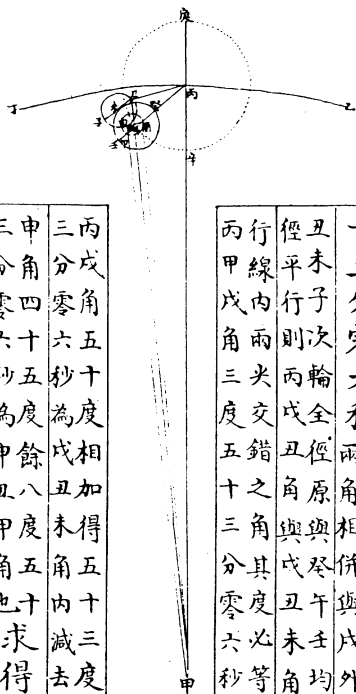 庚
丙
丁
乙
癸
未
子
甲
兩角相併與戌外
丑未子次輪全徑原與癸午壬均
徑平行則丙戌丑角與戌丑未角
行線內兩尖交錯之角其度必等
丙甲戌角三度五十三分零六秒
丙戌角五十度相加得五十三度
三分零六秒為戌丑未角內減去
申角四十五度餘八度五十
三分零六秒為申丑甲角也
求得